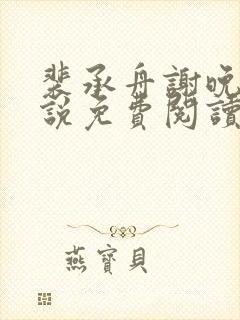 裴承舟謝晚
說免費閱讀
燕寶貝